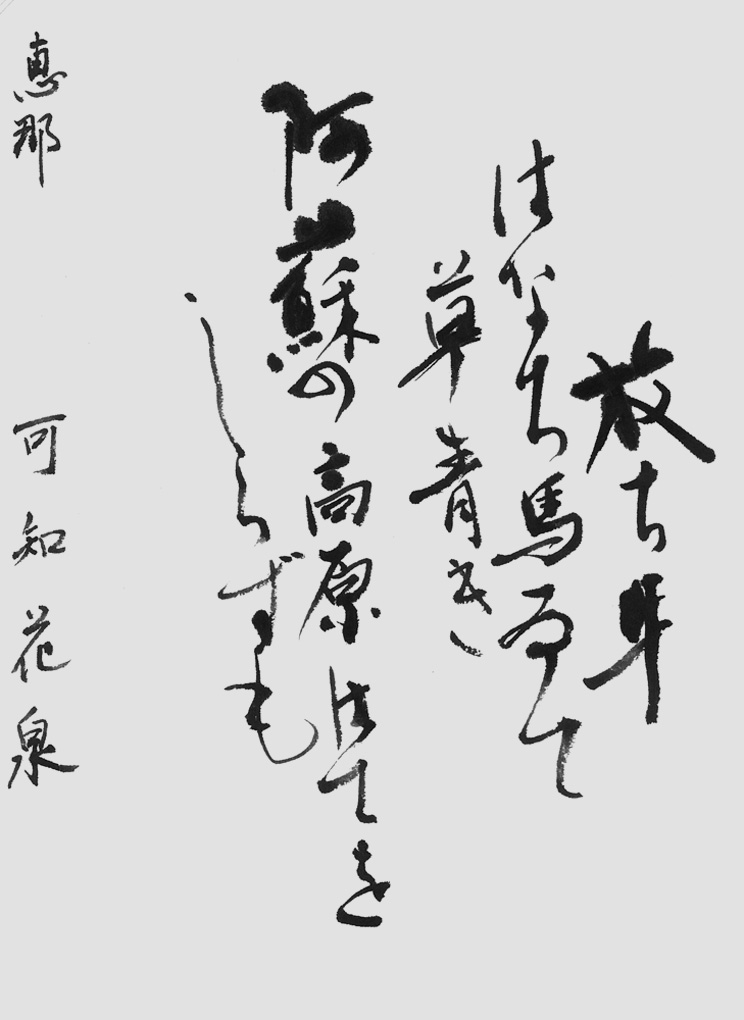 放ち牛
はなち馬ゐて
草青き
阿蘇の高原はてを
しらずも
恵那 可知花泉